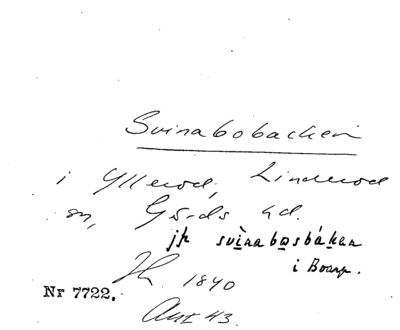 Svinabobacken
i Yllerod, Linderod
sn, Gärds hd.
jfr svìnabosbákan
i Boarp.
1840
Nr 7722.
43